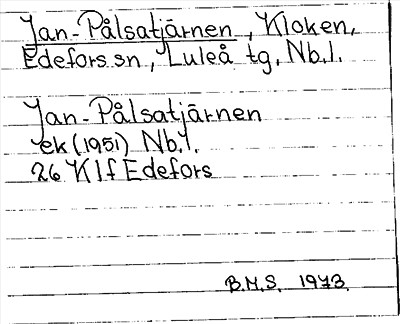 Jan-Pålsatjärnen, Kloken,
Edefors sn., Luleå tg, Nb.l.
Jan-Pålsatjärnen
ek (1951) Nb.l.
26 K l f Edefors
B.M.S. 1973.